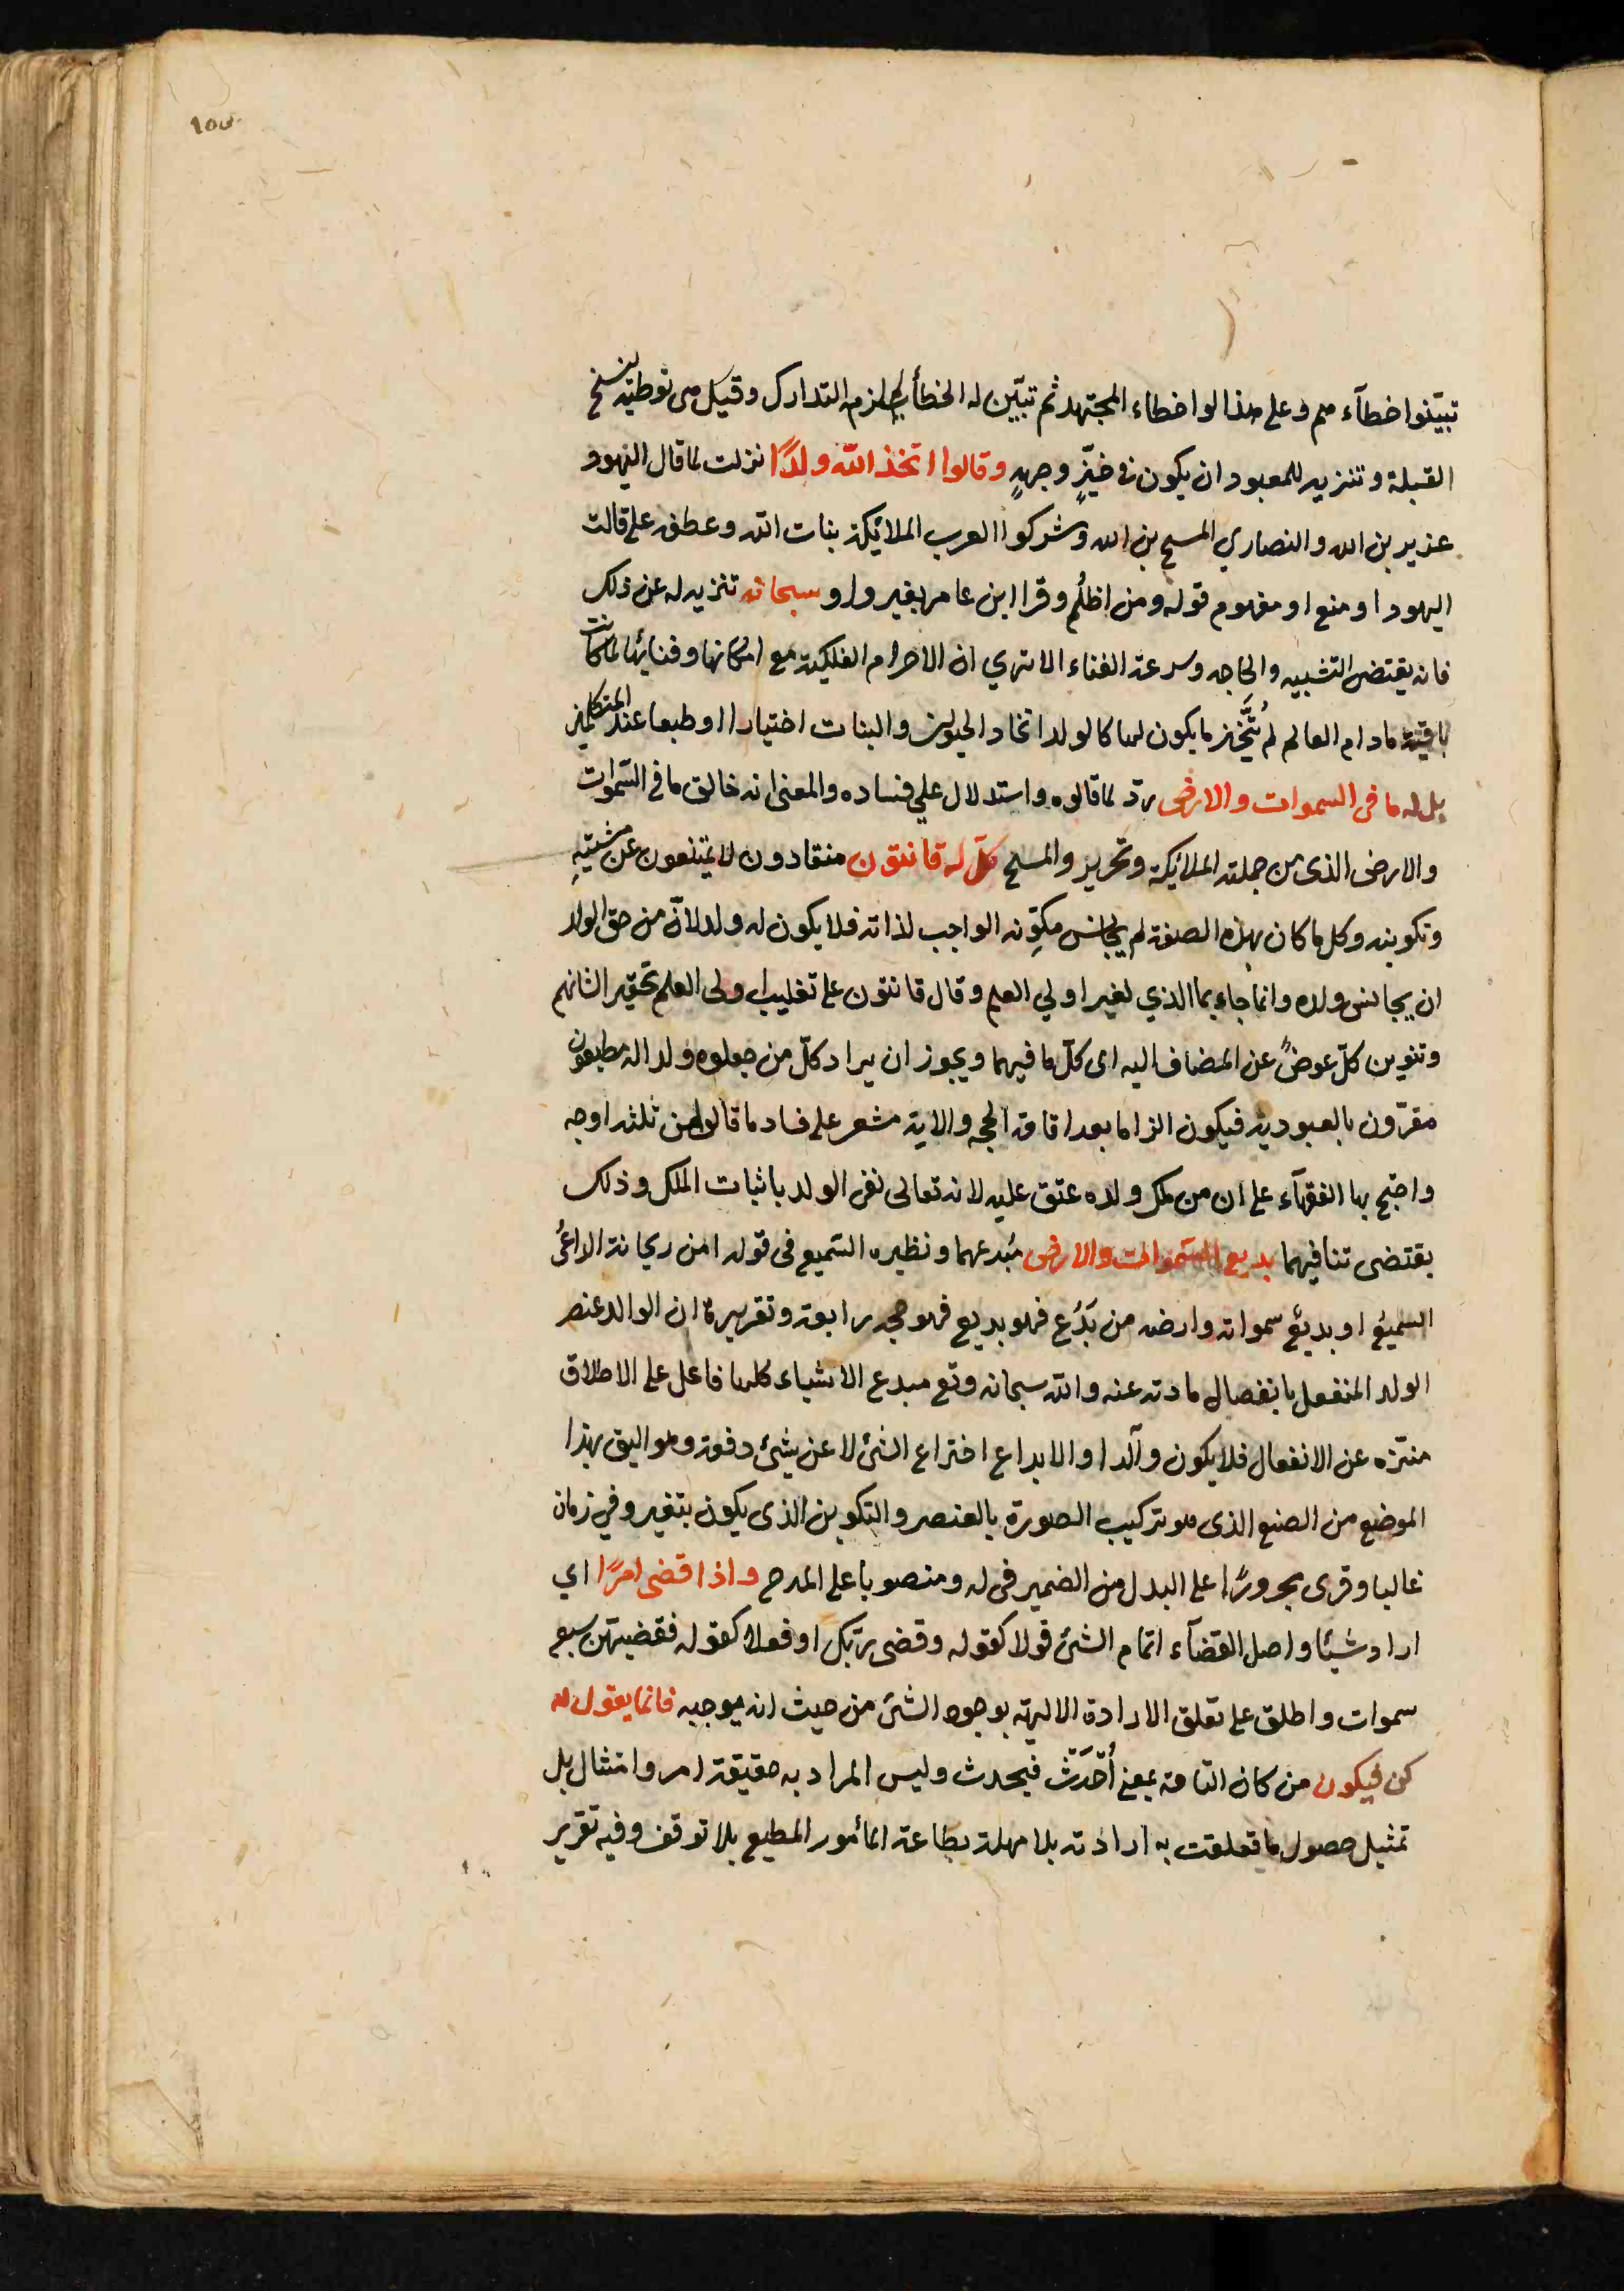 تبيّنوا خطآءهم وعلى هذا لو اخطاء المجتهد ثم تبيّن له الخطأ لم يلزمه التدارك وقيل هى توطية لنسخ
القبلة وتنزيه للمعبود ان يكون فى حيّزٍ وجهةٍ وقالوا اتخذ الله ولدًا نزلت لما قال اليهود
عزير بن الله والنصاري المسيح بن الله ومشركوا العرب الملائكة بنات الله وعطفه على قالت
اليهود او منع او مفهوم قوله ومن اظلم وقرا ابن عامر بغير واو سبحانه تنزيه له عن ذلك
فانه يقتضى التشبيه والحاجه وسرعة الفناء الا تري ان الاجرام الفلكية مع امكانها وفنائها لما كانت
باقية مادام العالم لم تتّخذ ما يكون لها كالولد اتخاد الحيوان والنبات اختيارا او طبعا عند المتكلمين
بل له ما فى السموات والارض ردّ لما قالوه واستدلال علي فساده والمعنى انه خالق ما فى السّموات
والارض الذى من جملته الملائكة وعزير والمسيح كلّ له قانتون منقادون لا يمتنعون عن مشيّتهِ
وتكوينه وكل ما كان بهذه الصفة لم يجانس مكوّنه الواجب لذاته فلا يكون له ولد لانّ من حق الولد
ان يجانس ولده وانما جاء بما الذي لغير اولي العلم وقال قانتون على تغليب اولى العلم تحقيرا لشانهم
وتنوين كلّ عوضٌ عن المضاف اليه اى كلّ ما فيهما ويجوز ان يراد كلّ من جعلوه ولدا له مطيعون
مقرّون بالعبودية فيكون الزاما بعد اقامة الحجه والاية مشعر على فساد ما قالوا من ثلثة اوجه
واحتج بها الفقهآء على ان من ملك ولده عتق عليه لانه تعالى نفى الولد باثبات الملك وذلك
يقتضى تنافيهما بديع السّموات والارض مُبدعهما ونظيره السّميع فى قوله امن ريحانة الداعي
السميع او بديع سمواته وارضه من بَدُع فهو بديع فهو حجه رابعة وتقريره ان الوالد عنصر
الولد المنفعل بانفصال مادته عنه والله سبحانه وتع مبدع الاشياء كلها فاعل على الاطلاق
منزّه عن الانفعال فلا يكون وآلدا والابداع اختراع الشئ لا عن شئ دفعة وهو اليق بهذا
الموضع من الصنع الذى هو تركيب الصورة بالعنصر والتكوين الذى يكون بتغير وفي زمان
غالبا وقرى مجرورًا على البدل من الضمير فى له ومنصوبا على المدح واذا قضى امرًا اي
اراد شيئا واصل القضآء اتمام الشئ قولا كقوله وقضى ربّك او فعلا كقوله فقضيهنّ سبع
سموات واطلق على تعلق الارادة الالهية بوجود الشئ من حيث انه يوجبه فانما يقول له
كن فيكون من كان التامة بمعنى أُحْدُث فيحدث وليس المراد به حقيقة امر وامتثال بل
تمثيل حصول ما تعلقت به ارادته بلا مهلة بطاعة المأمور المطيع بلا توقف وفيه تقرير